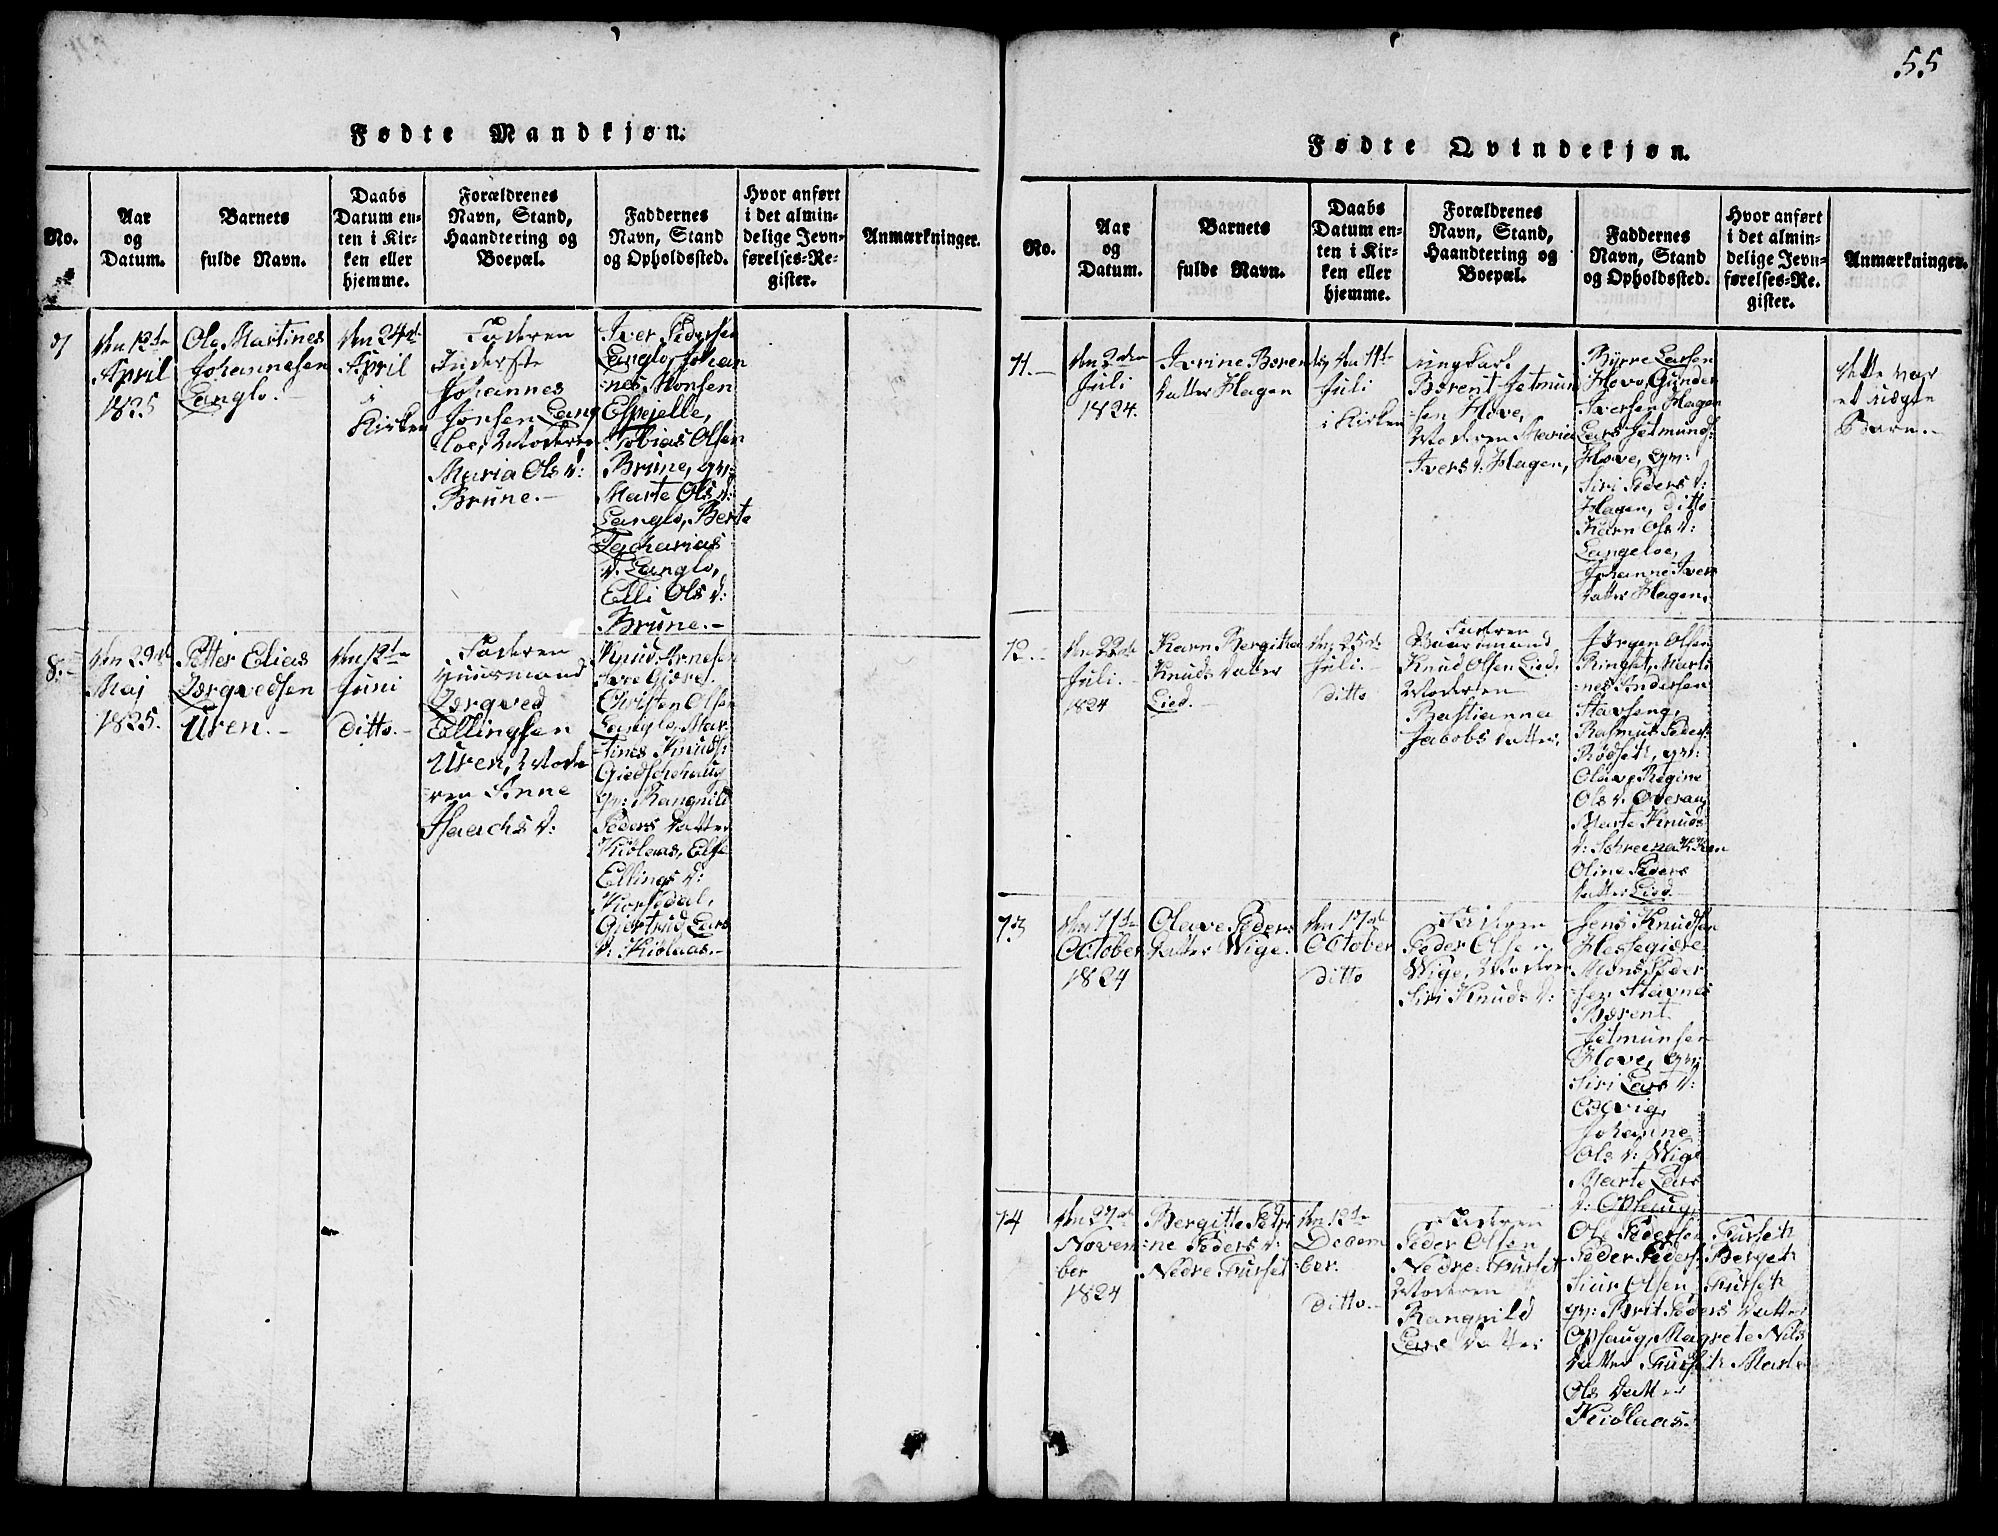 55
Fødte Mandkjøn.
No.
Aar
og
Datum.
Barnets
fulde Navn.
Daabs
Datum en-
ten i Kir-
ken eller
hjemme.
Forældrenes
Navn, Stand,
Haandtering og
Boepæl.
Faddernes
Navn, Stand
og Opholdssted.
Hvor anført
i det almin-
delige Jevn-
førelses-Re-
gister.
Anmærkninger.
7
den 12te
April
1825
Ole Martines
Johannesen
Langlo.-
den 24de
April
i
Kirken
Faderen
Inderste
Johannes
Jonsen Lang
loe, Moderen
Maria Ols d:
Brune.-
Iver Pedersen
Langlo, Johan
nes Monsen
Espejelle,
Tobias Olsen
Brune, qv:
Marte Ols d:
Langlo, Berte
Zacharias
d. Langlo,
Elli Ols d:
Brune.-
8.-
den 29de
Maj
1825.
Petter Elias
Lergvedsen
Uren.-
den 12te
Juni
ditto.-
Faderen
Huusmand
Lergved
Ellingsen
Uren, Mode
ren Anne
Isaachs d:
Knud Arnesen
Christen Olsen
Langlo, Mar
tines Knuds:
qv: Rangnild
Peders datter
Kiølaas, Else
Ellings d:
Korsedal,
Gjertrud Lars
d: Kiølaas.-
Fødte Qvindekjøn.
No.
Aar
og
Datum.
Barnets
fulde Navn.
Daabs
Datum en-
ten i Kir-
ken eller
hjemme.
Forældrenes
Navn, Stand,
Haandtering og
Boepæl.
Faddernes
Navn, Stand
og Opholdssted.
Hvor anført
i det almin-
delige Jevn-
førelses-Re-
gister.
Anmærkninger.
11.-
den 2den
Juli
1824.
Iverine Beren
datter Hagen
den 11te
Juli
i Kirken
ungkarl
Berent Jetmun
sen Hove,
Moderen Maria
Ivers d: Hagen,
Byrre Larsen
Hove, Gunder
Iversen Hagen
Lars Jetmunds:
Hove, qv:
Siri Peders d:
Hagen, ditto
Karn Ols d:
Langeloe,
Johanne Ivers
datter Hagen.
dette var
et uægte
Barn.-
12.-
den 22de
Juli.
1824
Karn Bergitha
Knuds datter
Lied.-
den 25de
Juli.-
ditto
Faderen
Gaardmand
Knud Olsen Lied.
Moderen
Bastianna
Jacobs datter,
Jørgen Olsen
Ringset, Marti
nes Andersen
Stavseng,
Rasmus Peders:
Rødseth, qv:
Olave Regine
Ols d. Overaa
Marte Knuds
Oline Peders
datter Lied
13
den 11te
October
1824
Olave Peders
datter Wige.
den 17de
October
ditto
Faderen
Peder Olsen
Wige, Moderen
Siri Knuds d:
Jens Knudsen
Hessegiere
Mons Peder
sen Stavnes
Berent
Jetmunsen
Hove, qv:
Siri Lars d:
Johanne
Ols d: Wige
Marte Lars
d: Ophaug
14
den 27de
Novem
ber
1824
Bergitte Petri
ne Peders d:
Nedre Furset
den 12te
Decem
ber.
ditto.-
Faderen
Peder Olsen
Nedre Furset
Moderen
Rangnild
Lars datter
Ole Pedersen Furseth
Peder Peders: Bergeth
Siur Olsen, Furseth
qv: Brit Peders datter
Ophaug, Magrete Nils
datter Furseth Marte
Ols datter
Kiølaas.